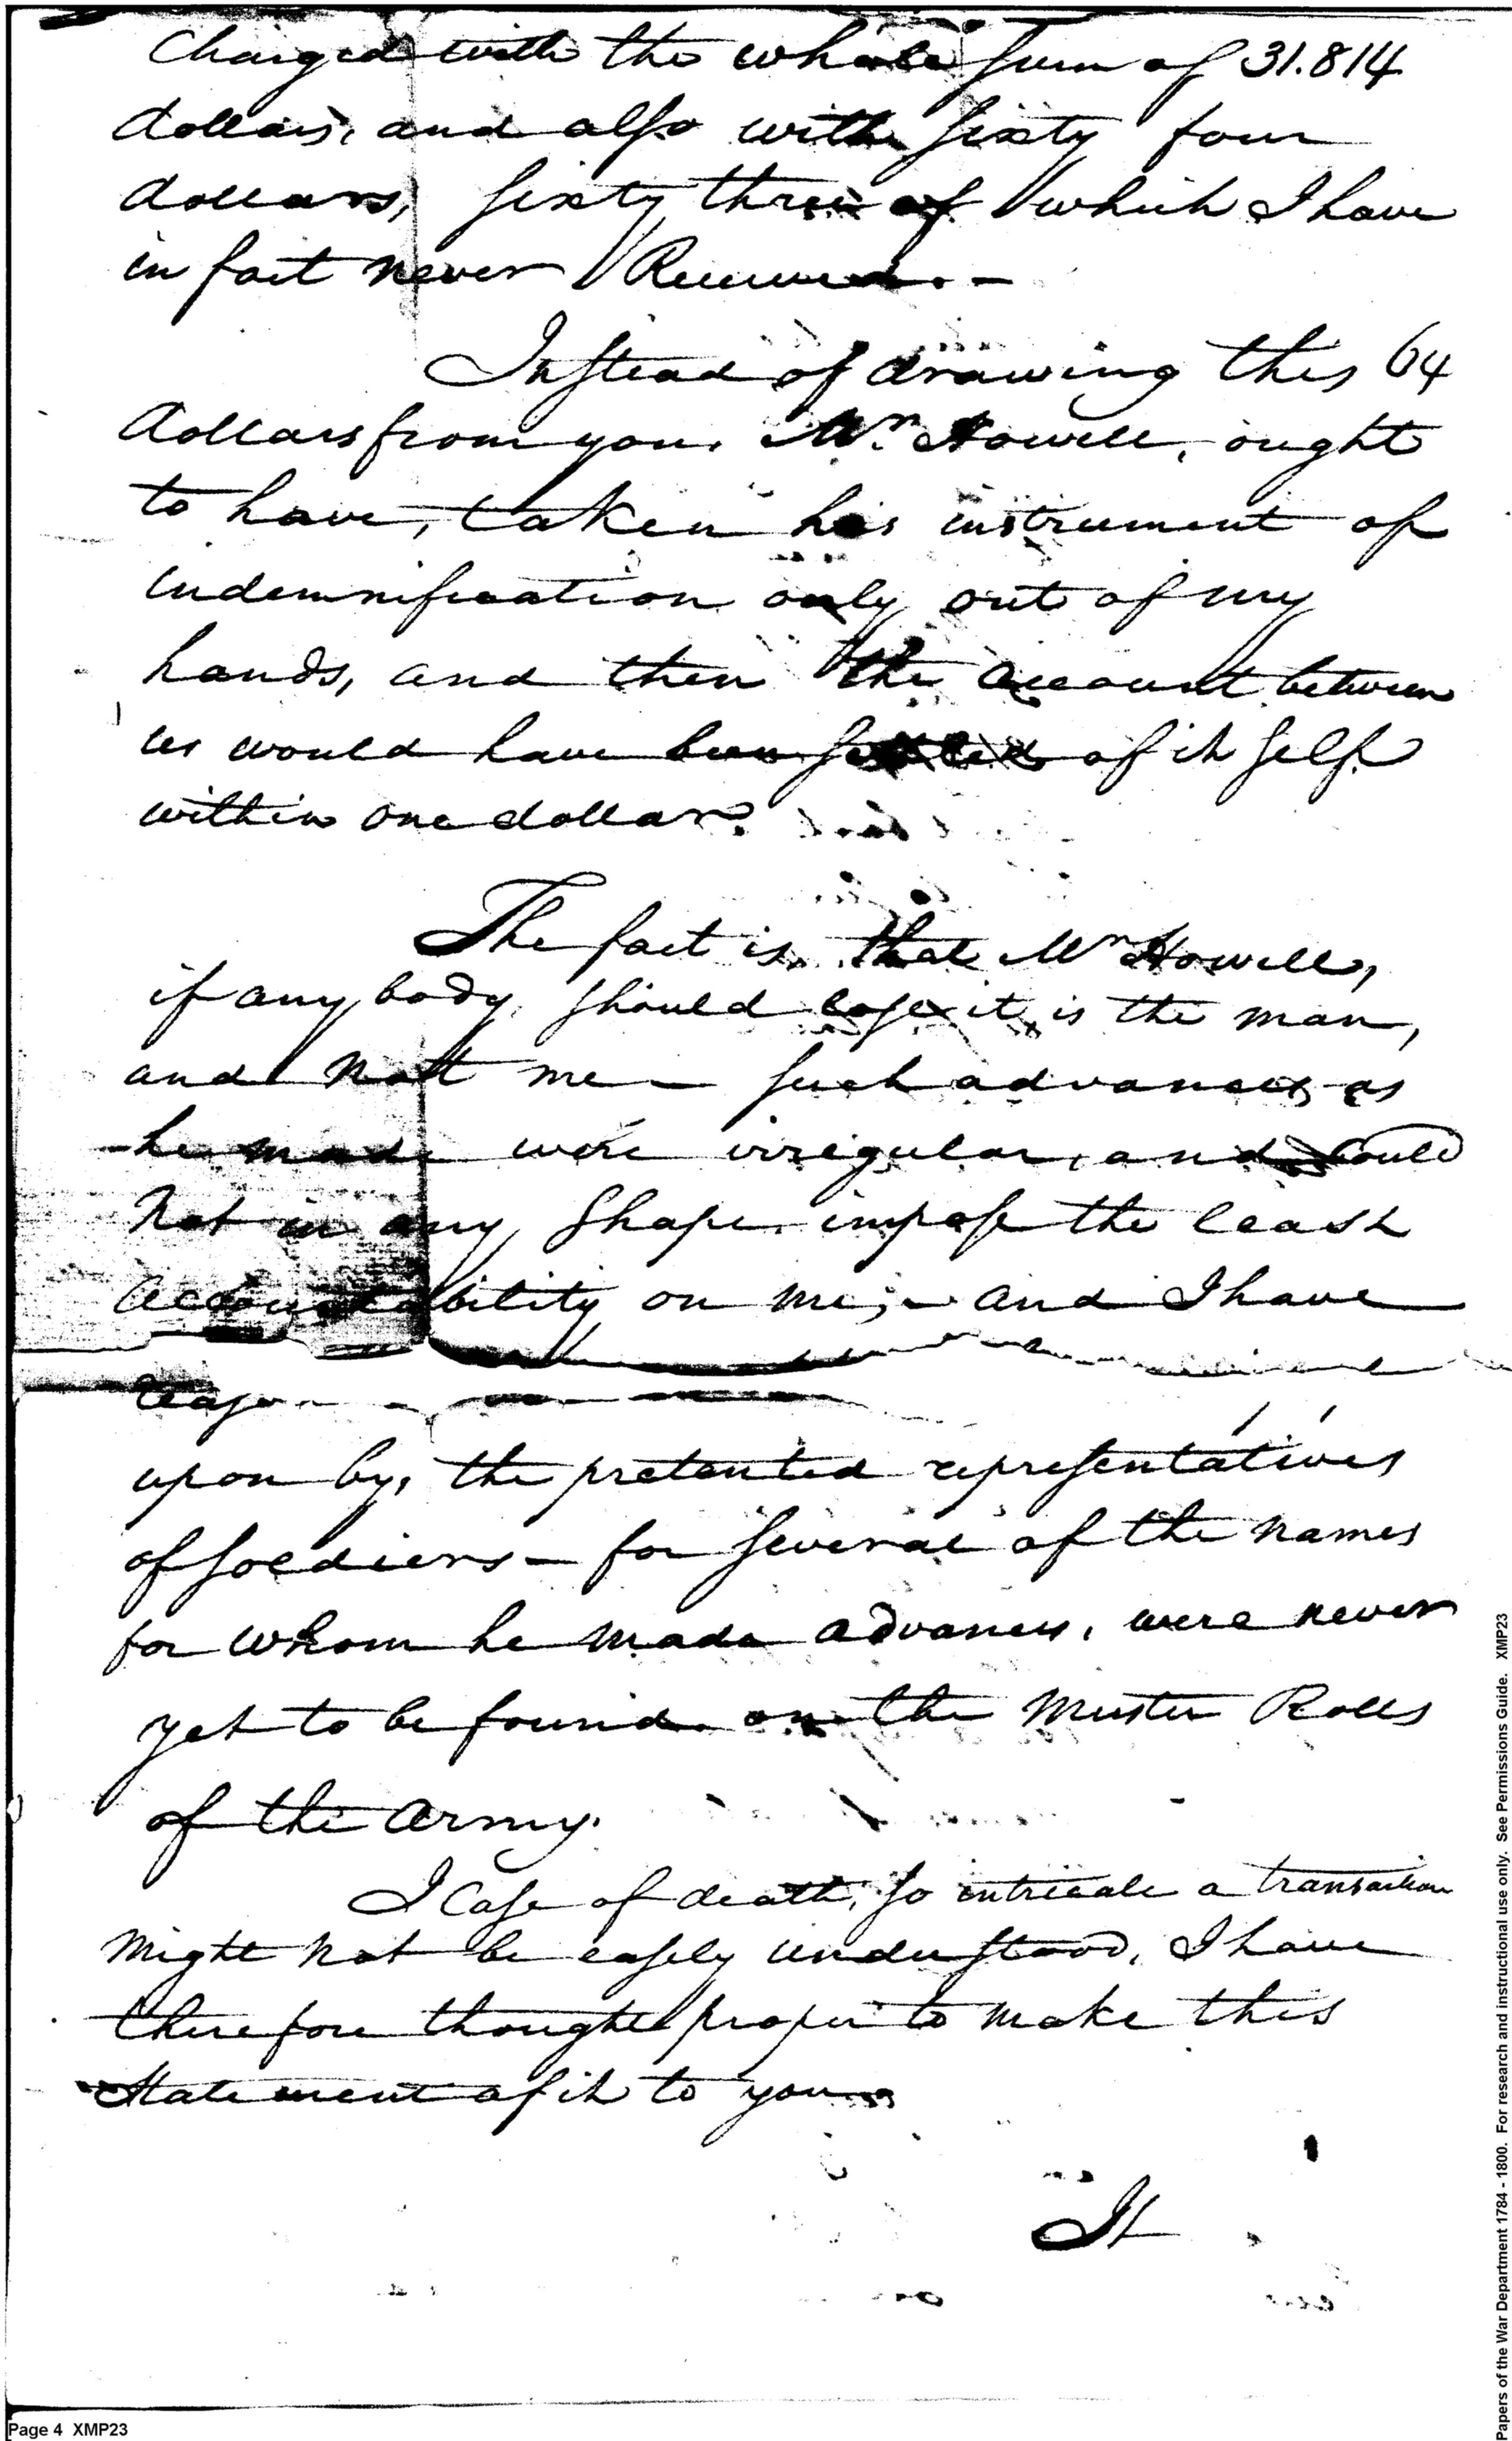 Charged with the whole sum of 31.814
dollars, and also with sixty four
dollars, sixty three of which I have
in fact never Received. —
Instead of drawing this 64
dollars from you, Mr. Howell, ought
to have, taken his instrument of
indemnification only out of my
hands, and then the account between
us would have been settled of it self
within one dollar.
The fact is, that Mr Howell,
if any body, should lose it, is the man,
and not me — such advances as
he made were irregular, and could
not in any shape impose the least
accountability on me; — and I have
reason
upon by, the pretented representatives
of soldiers — for several of the names
for whom he made advances, were never
yet to be found on the Muster Rolls
of the Army.
I Case of death, so intricate a transaction
might not be easely understood, I have
therefore thought proper to make this
Statement of it to you
It
Page 4 XMP23
Papers of the War Department 1784 - 1800. For research and instructional use only. See Permissions Guide. XMP23